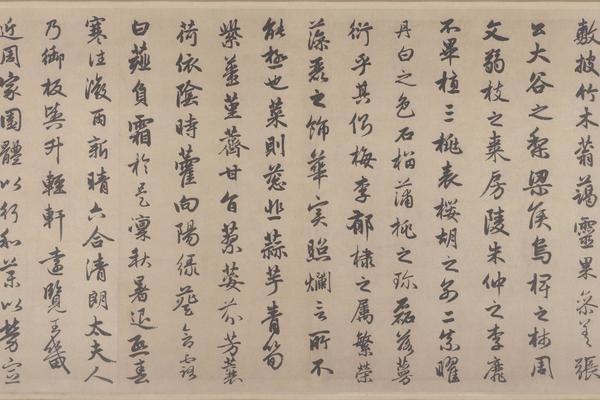 敷披竹木蓊藹靈果參差張
公大谷之梨梁侯烏椑之柿周
文弱枝之棗房陵朱仲之李靡
不畢植三桃表櫻胡之別二柰曜
丹白之色石榴蒲桃之珎磊落蔓
衍乎其側梅李郁棣之属繁榮
藻麗之飾華實照爛言所不
能極也菜則葱韭蒜芋青筍
紫薑堇薺甘旨蓼荾芬芳蘘
荷依陰時藿向陽緑葵含露
白薤負霜於是凜秋暑退熙春
寒往微雨新晴六合清朗太夫人
乃御板輿升輕軒遠覽王畿
近周家園體以行和藥以勞宣